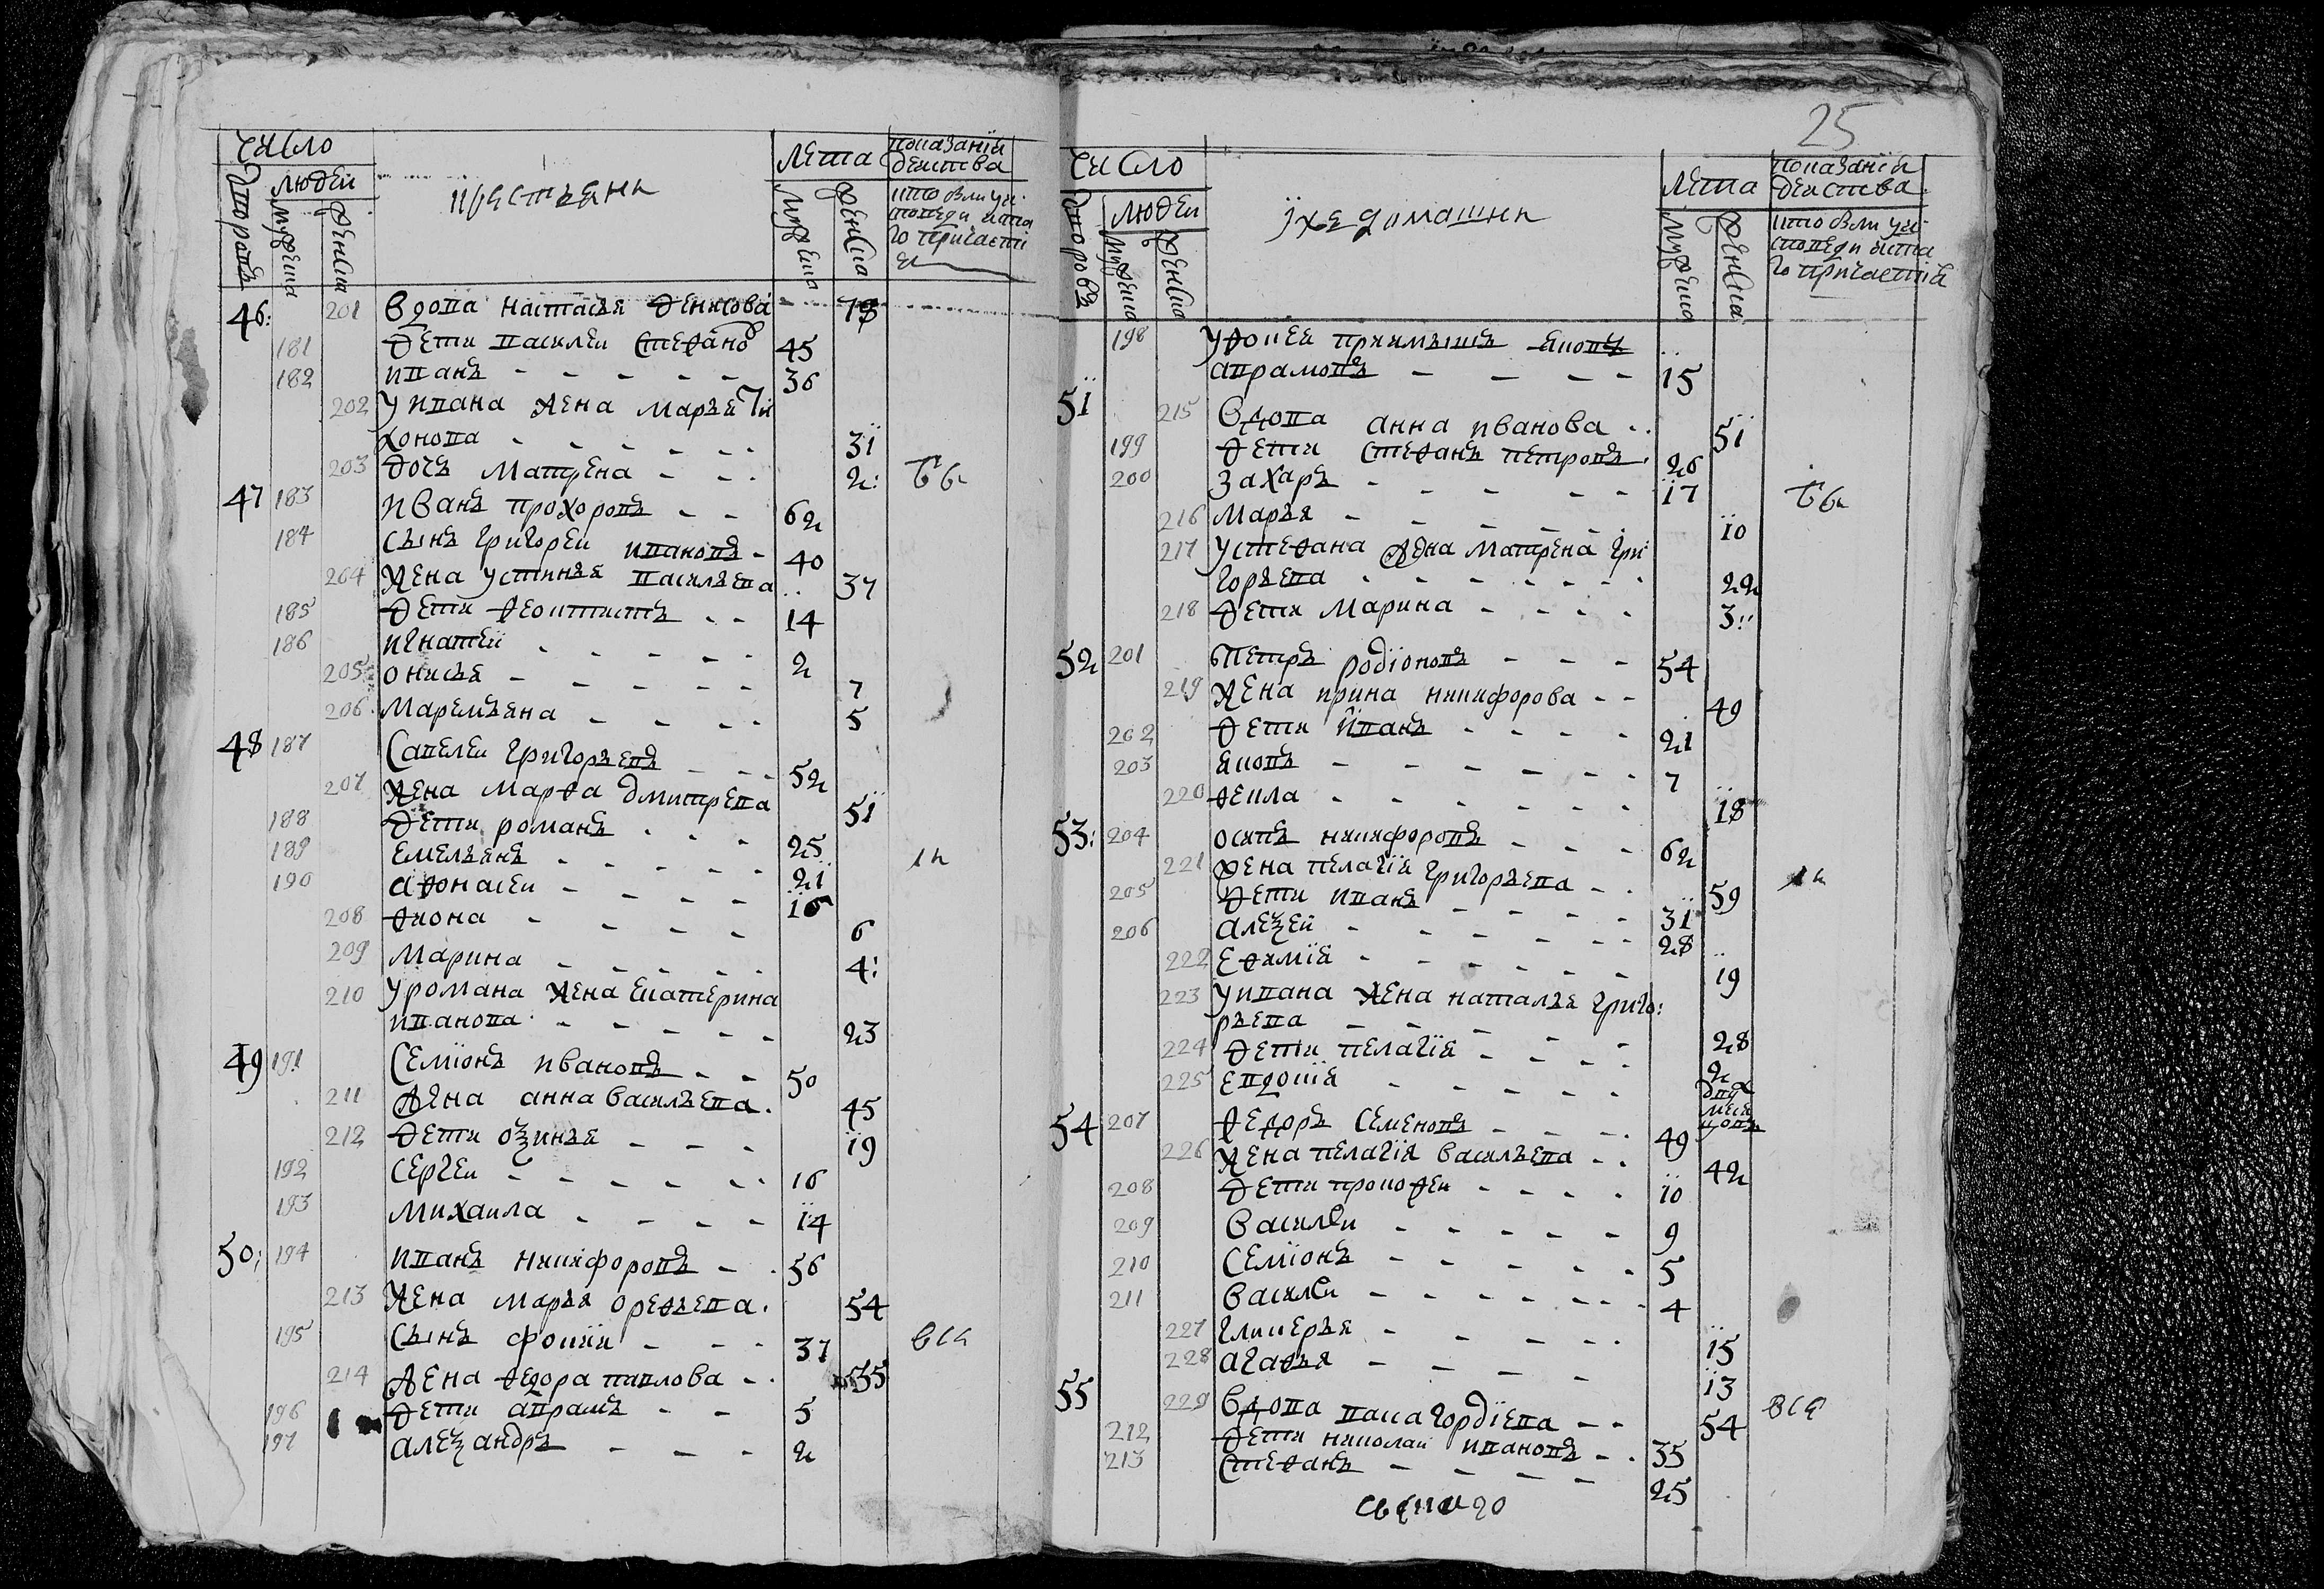 число
дворовъ
людей
мужеска
женска
крестьяня
лета
мужеска
женска
показаний
действа
кто были у и
споведи и ста
го причасти
я
46: 201 вдова настасья денисова 78
181 дети василеи стефанов 45
182 иванъ 36
202 у ивана жена марья ти
хонова 31
203 дочь матрена 2:
47 183 иванъ прохоровъ 62
184 сынъ григореи ивановъ 40
204 жена устинья васильева 37
185 дети феоктистъ 14
186 игнатеи 2
205 онисья 7
206 маремьяна 5
48 187 савелеи григорьевъ 52
207 жена марфа дмитрева 51
188 дети романъ 25
189 емельянъ 21
190 афонасеи 16
208 фиона 6
209 марина 4:
210 у романа жена екатерина
иванова 23
49 191 семионъ ивановъ 50
211 жена анна васильева 45
212 дети оксинья 19
192 сергеи 16
193 михаила 14
50: 194 иванъ никифоровъ 56
213 жена марья орефьева 54
195 сынъ фокии 37
214 жена федора павлова 35
196 дети аврамъ 5
197 александръ 2
25
число
дворовъ
людеи
мужеска
женска
ихъ домашни
лета
мужеска
женска
показаний
действа
кто были у и
споведи и ста
го причастия
198 у фокея приимышъ яковъ
аврамовъ 15
51 215 вдова анна иванова 51
199 дети стефанъ петровъ 26
200 захаръ 17
216 марья 10
217 у стефана жена матрена гри
горьева 22
218 дети марина 3:
52 201 петръ родионовъ 54
219 жена ирина никифорова 49
202 дети иванъ 21
203 яковъ 7
220 фекла 18
53: 204 осипъ никифоровъ 62
221 жена пелагия григорьева 59
205 дети иванъ 31
206 алексеи 28
222 ефимия 19
223 у ивана жена наталья григо:
рьева 28
224 дети пелагия 2
225 евдокия двух
месе
цовъ
54 207 федоръ семеновъ 49
226 жена пелагия васильева 42
208 дети прокофеи 10
209 василеи 9
210 семионъ 5
211 василеи 4
227 гликерья 15
228 агафья 13
55 229 вдова васа гордиева 54
212 дети николаи ивановъ 35
213 стефанъ 25